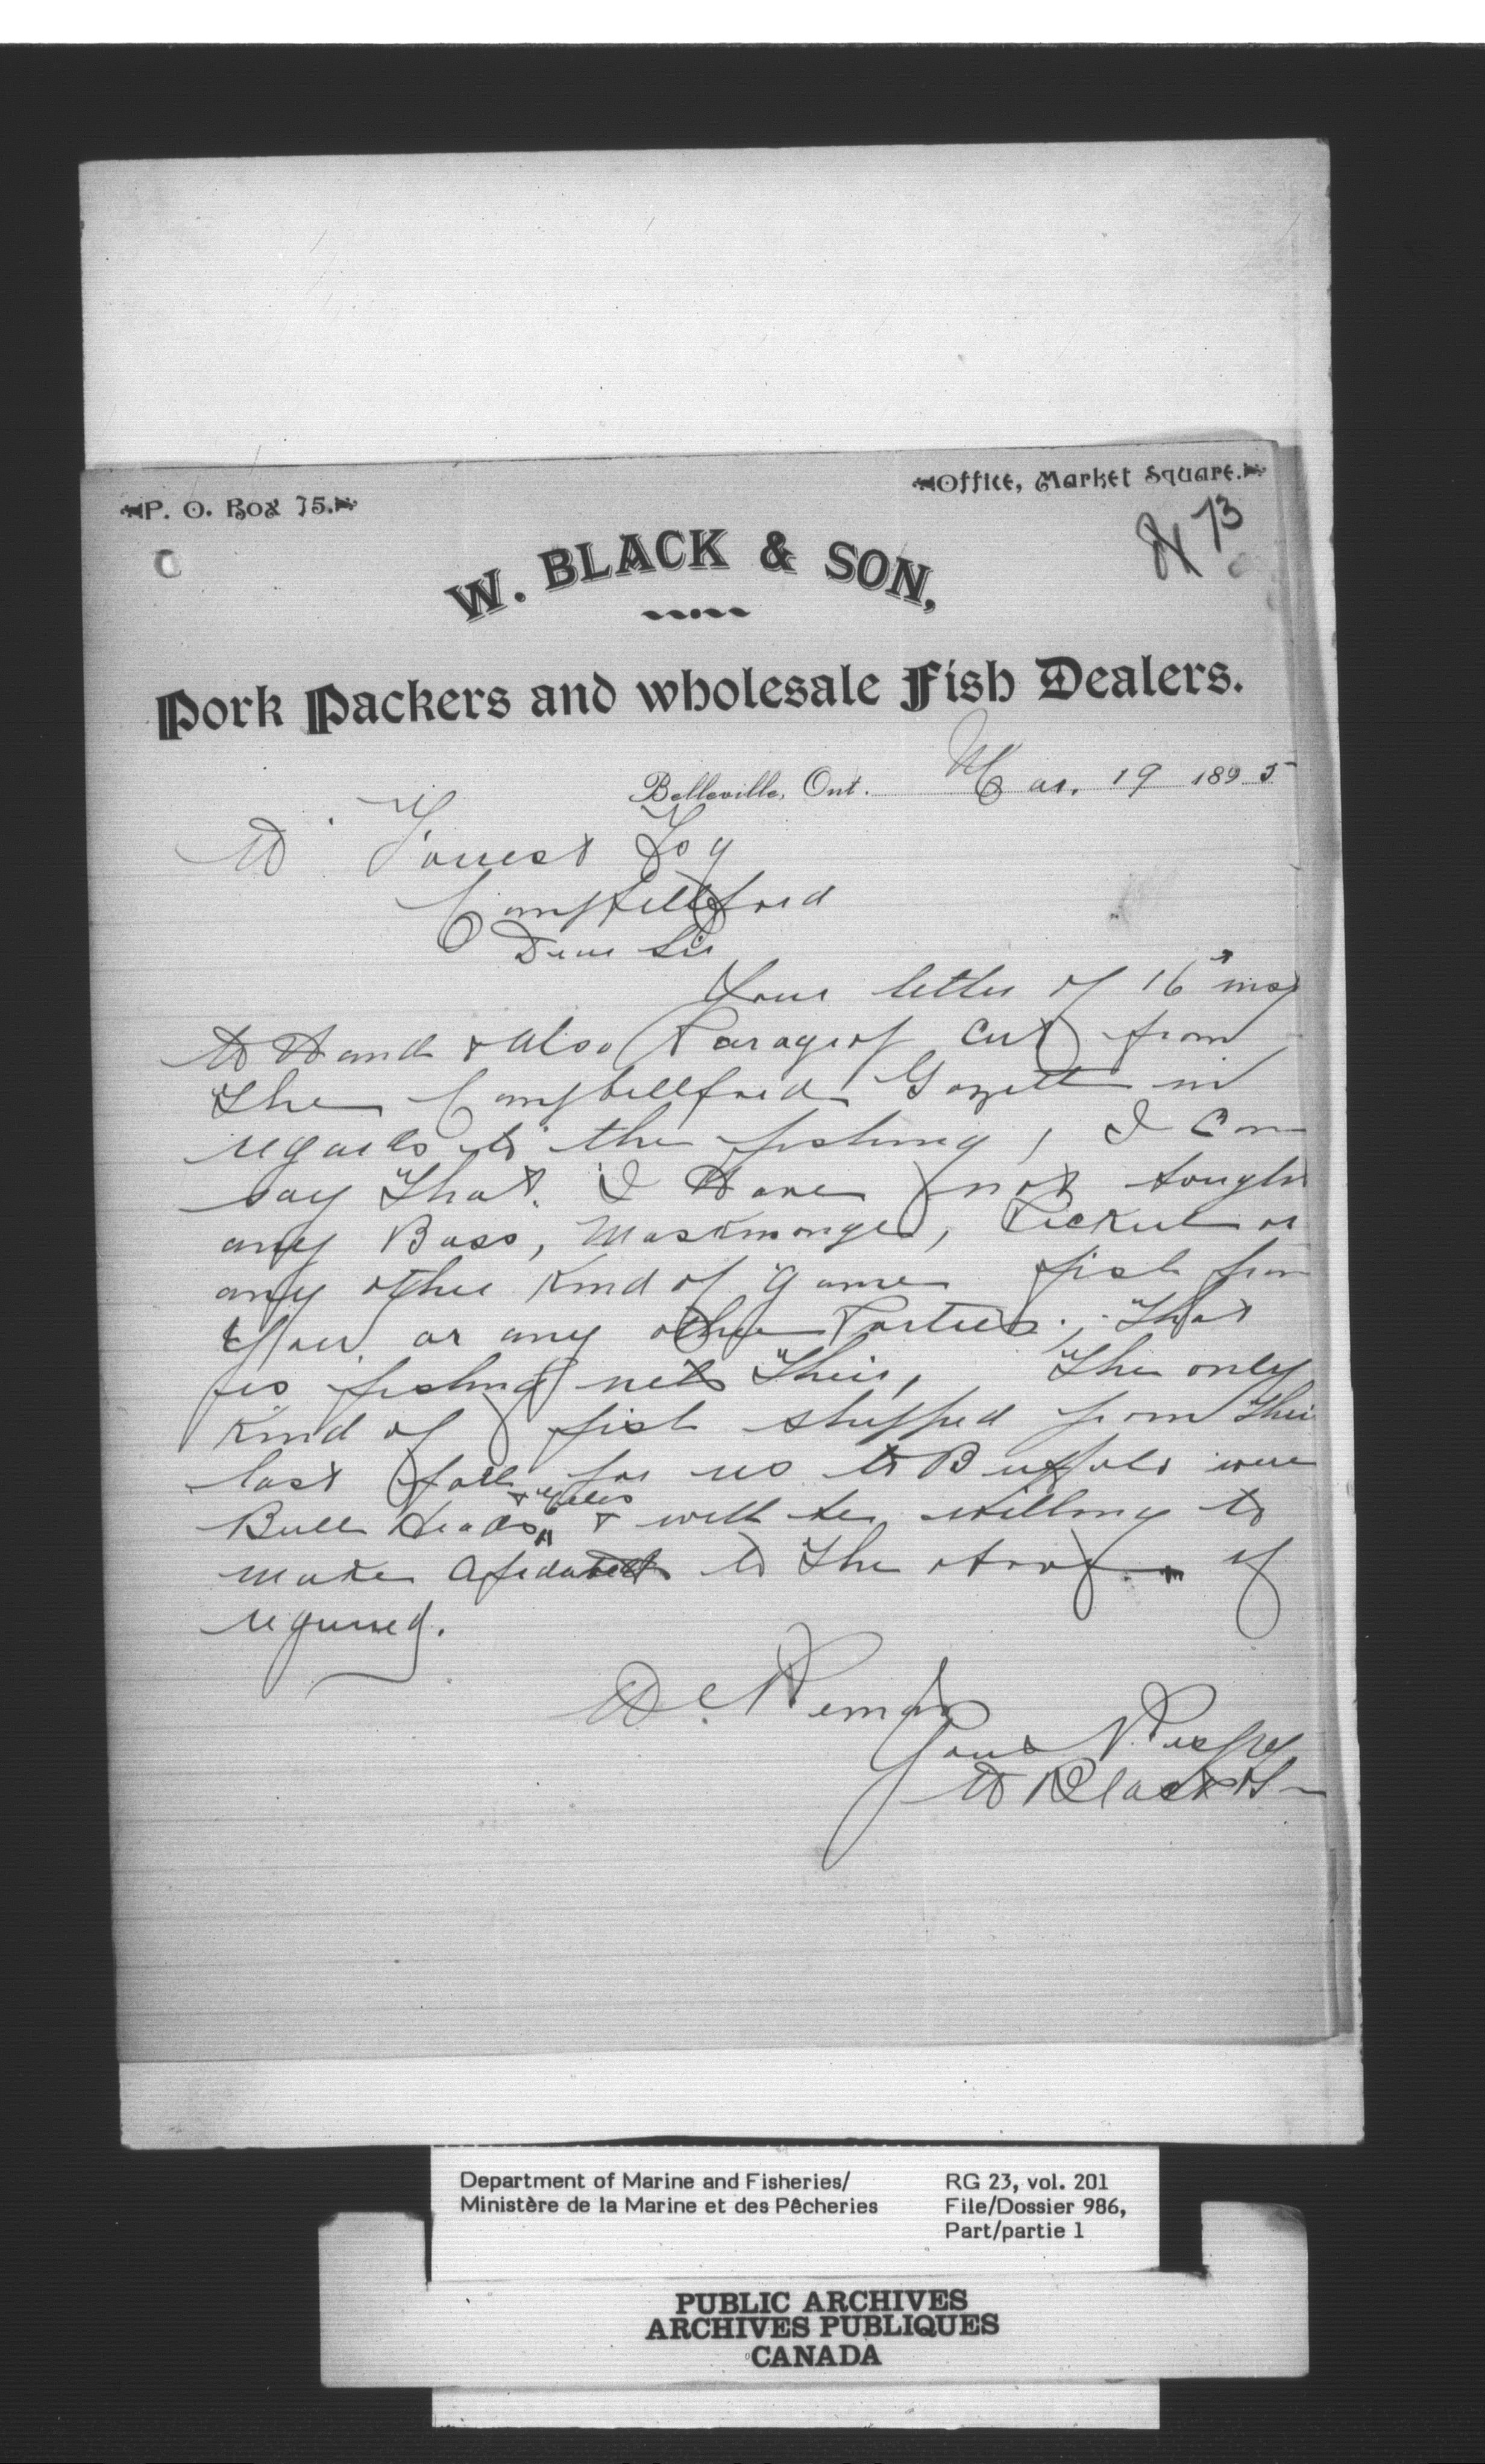 P. O. Box 75.
Office, Market Square.
73
W. BLACK & SON,
Pork Packers and wholesale Fish Dealers.
Belleville, Ont. Mar. 19 1895
W Forrest
Campbellford
Dear Sir
Your letter of 16th inst
to Hand & also Paragrof cut from
the Campbellford Gazett in
regards to the fishing, I Can
say that I Have not bought
any Bass, Maskinonge, Pickrel or
any other Kind of game fish from
You or any other Parties that
is fishing nets their, The only
Kind of fish shipped from their
last fall for us to Buffalo were
Bull Heads & Eeles & will be willing to
make Afidavit to the above if
required.
We Remain
Yours Respy
W Black & Son
Department of Marine and Fisheries/
Ministère de la Marine et des Pêcheries
RG 23, vol. 201
File/Dossier 986,
Part/partie 1
PUBLIC ARCHIVES
ARCHIVES PUBLIQUES
CANADA